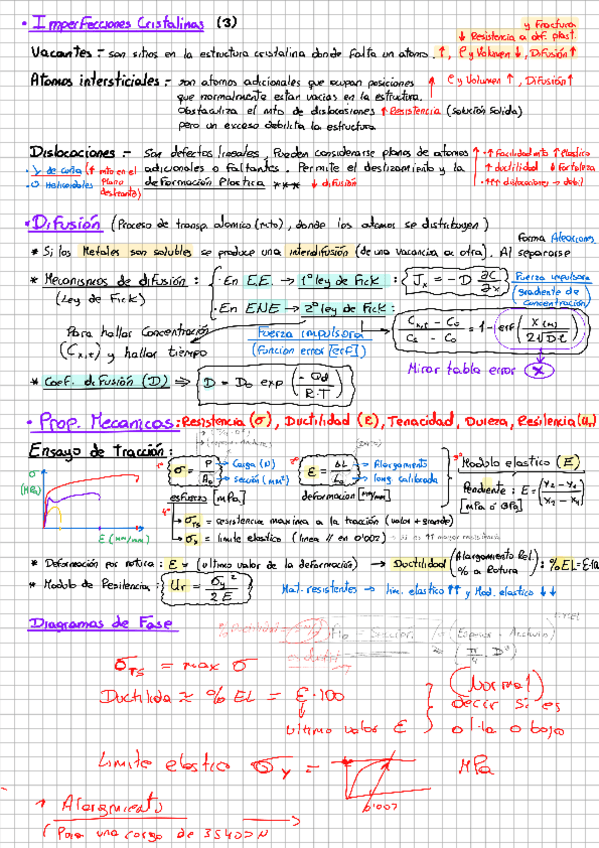 • Imperfecciones Cristalinas (3)
y Fractura
↓ Resistencia a def. plast.
Vacantes - son sitios en la estructura cristalina donde falta un átomo. ↑, ρ y Volumen ↓, Difusión ↑
Atomos intersticiales :- son atomos adicionales que ocupan posiciones ↑ ρ y Volumen ↑, Difusión ↑
que normalmente estan vacias en la estructura.
Obstaculiza el mto de dislocaciones ↑ Resistencia (solución Solida)
pero un exceso debilita la estructura
Dislocaciones :- Son defectos lineales, Pueden considerarse planos de atomos ↑ · ↑ Facilidad mto ↑ Plastico
adicionales o faltantes. Permite el deslizamiento y la ↑ ductilidad ↓ fortaleza
deformación Plastica *** ↓ difusión
· ↑↑↑ dislocaciones → debil
· y de cuña (↑ mto en el
Plano
deslizante)
· O Helicoidales
• Difusión (Proceso de transp. atomico (mto), donde los atomos se distribuyen)
forma Aleaciones
* Si los Metales son solubles se produce una interdifusión (de una vacancia a otra). Al separarse
* Mecanismos de difusión : · En E.E. → 1º ley de Fick : Jx = -D ∂C/∂x Fuerza impulsora
(Ley de Fick) (gradiente de
concentración)
· En ENE → 2º ley de Fick :
Para hallar Concentración Fuerza impulsora Cx,t - Co / Cs - Co = 1 - erf (X (m) / 2√D·t)
(Cx,t) y hallar tiempo (Funcion error [erf])
Mirar tabla error x
* Coef. difusión (D) ⇒ D = Do exp (-Qd / R·T)
• Prop. Mecanicas: Resistencia (σ), Ductilidad (ε), Tenacidad, Dureza, Resilencia (ur)
Ensayo de tracción :
σ = P/Ao → Carga (N) → sección (mm²) ε = ΔL/Lo → Alargamiento → long calibrada Modulo elastico (E)
esfuerzo [MPa] deformación [mm/mm] Pendiente : E = (y2 - y1 / x2 - x1)
[MPa o GPa]
σ (MPa)
ε (mm/mm)
→ σTS = resistencia maxima a la tracción (valor + grande)
→ σy = limite elastico (linea // en 0'002)
* Deformación por rotura : ε = (ultimo valor de la deformación) → Ductilidad (Alargamiento Rel. % a Rotura) : %EL = ε·100
* Modulo de Resilencia : Ur = σy² / 2E Mat. resistentes → lim. elastico ↑↑ y Mod. elastico ↓↓
Diagramas de Fase
σTS = max σ
Ductilida ≈ % EL = ε·100
ultimo valor ε
(Normal)
decir si es
alta o bajo
Limite elastico σy = MPa
0'002
↑ Alargamiento
(Para una carga de 35400 N